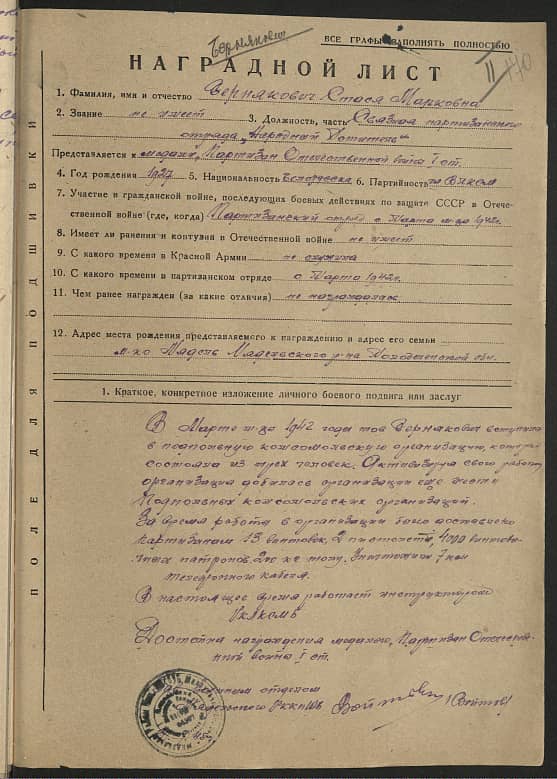 Бернякович
ВСЕ ГРАФЫ ЗАПОЛНЯТЬ ПОЛНОСТЬЮ
НАГРАДНОЙ ЛИСТ
11
1. Фамилия, имя и отчество Бернякович Стася Марковна
2. Звание не имеет 3. Должность, часть Связная партизанского
отряда „Народный Мститель"
Представляется к медали „Партизан Отечественной войны I ст.
4. Год рождения 1927 5. Национальность Белорусска 6. Партийность чл ВЛКСМ
7. Участие в гражданской войне, последующих боевых действиях по защите СССР в Отече-
ственной войне (где, когда) Партизанский отряд с Марта м-ца 1942г.
8. Имеет ли ранения и контузии в Отечественной войне не имеет
9. С какого времени в Красной Армии не служила
10. С какого времени в партизанском отряде с Марта 1942г.
11. Чем ранее награжден (за какие отличия) не награждалась
12. Адрес места рождения представляемого к награждению и адрес его семьи
м-ко Мядель Мядельского р-на Молодеченской обл.
1. Краткое, конкретное изложение личного боевого подвига или заслуг
В Марте м-це 1942 года тов Бернякович вступила
в подпольную комсомольскую организацию, которая
состояла из трех человек. Активизируя свою работу
организация добилась организации еще шести
Подпольных комсомольских организаций.
За время работы в организации было доставлено
партизанам 13 винтовок, 2 пистолета, 4000 винтово-
чных патронов, 2 кг толу. Уничтожили 7 км
телефонного кабеля.
В настоящее время работает инструктором
РК ЛКСМБ
Достойна награждения медалью „Партизан Отечестве-
нной войны I ст.
отделом
Мядельского РККП/б/Б Войтов /Войтов/
ПОЛЕ ДЛЯ ПОДШИВКИ